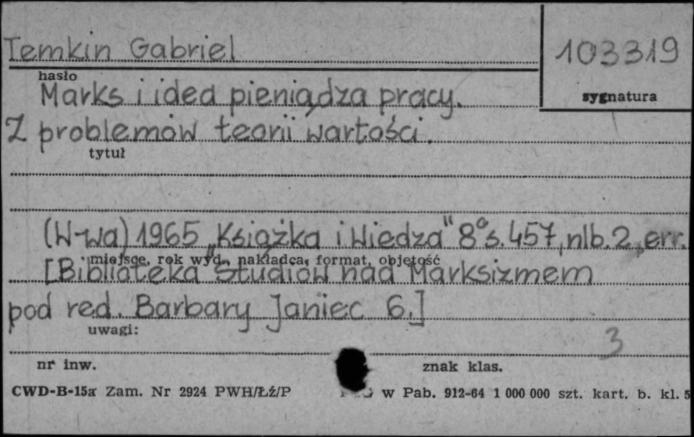 Temkin Gabriel
103319
hasło
sygnatura
Marks i idea pieniądza pracy.
Z problemów teorii wartości.
tytuł
(W-wa) 1965 „Książka i Wiedza" 8° s. 457, nlb. 2, err.
miejsce, rok wyd., nakładca, format, objętość
[Biblioteka Studiów nad Marksizmem
pod red. Barbary Janiec 6.]
uwagi:
3
nr inw.
znak klas.
CWD-B-15a Zam. Nr 2924 PWH/Łź/P
w Pab. 912-64 1 000 000 szt. kart. b. kl. 5